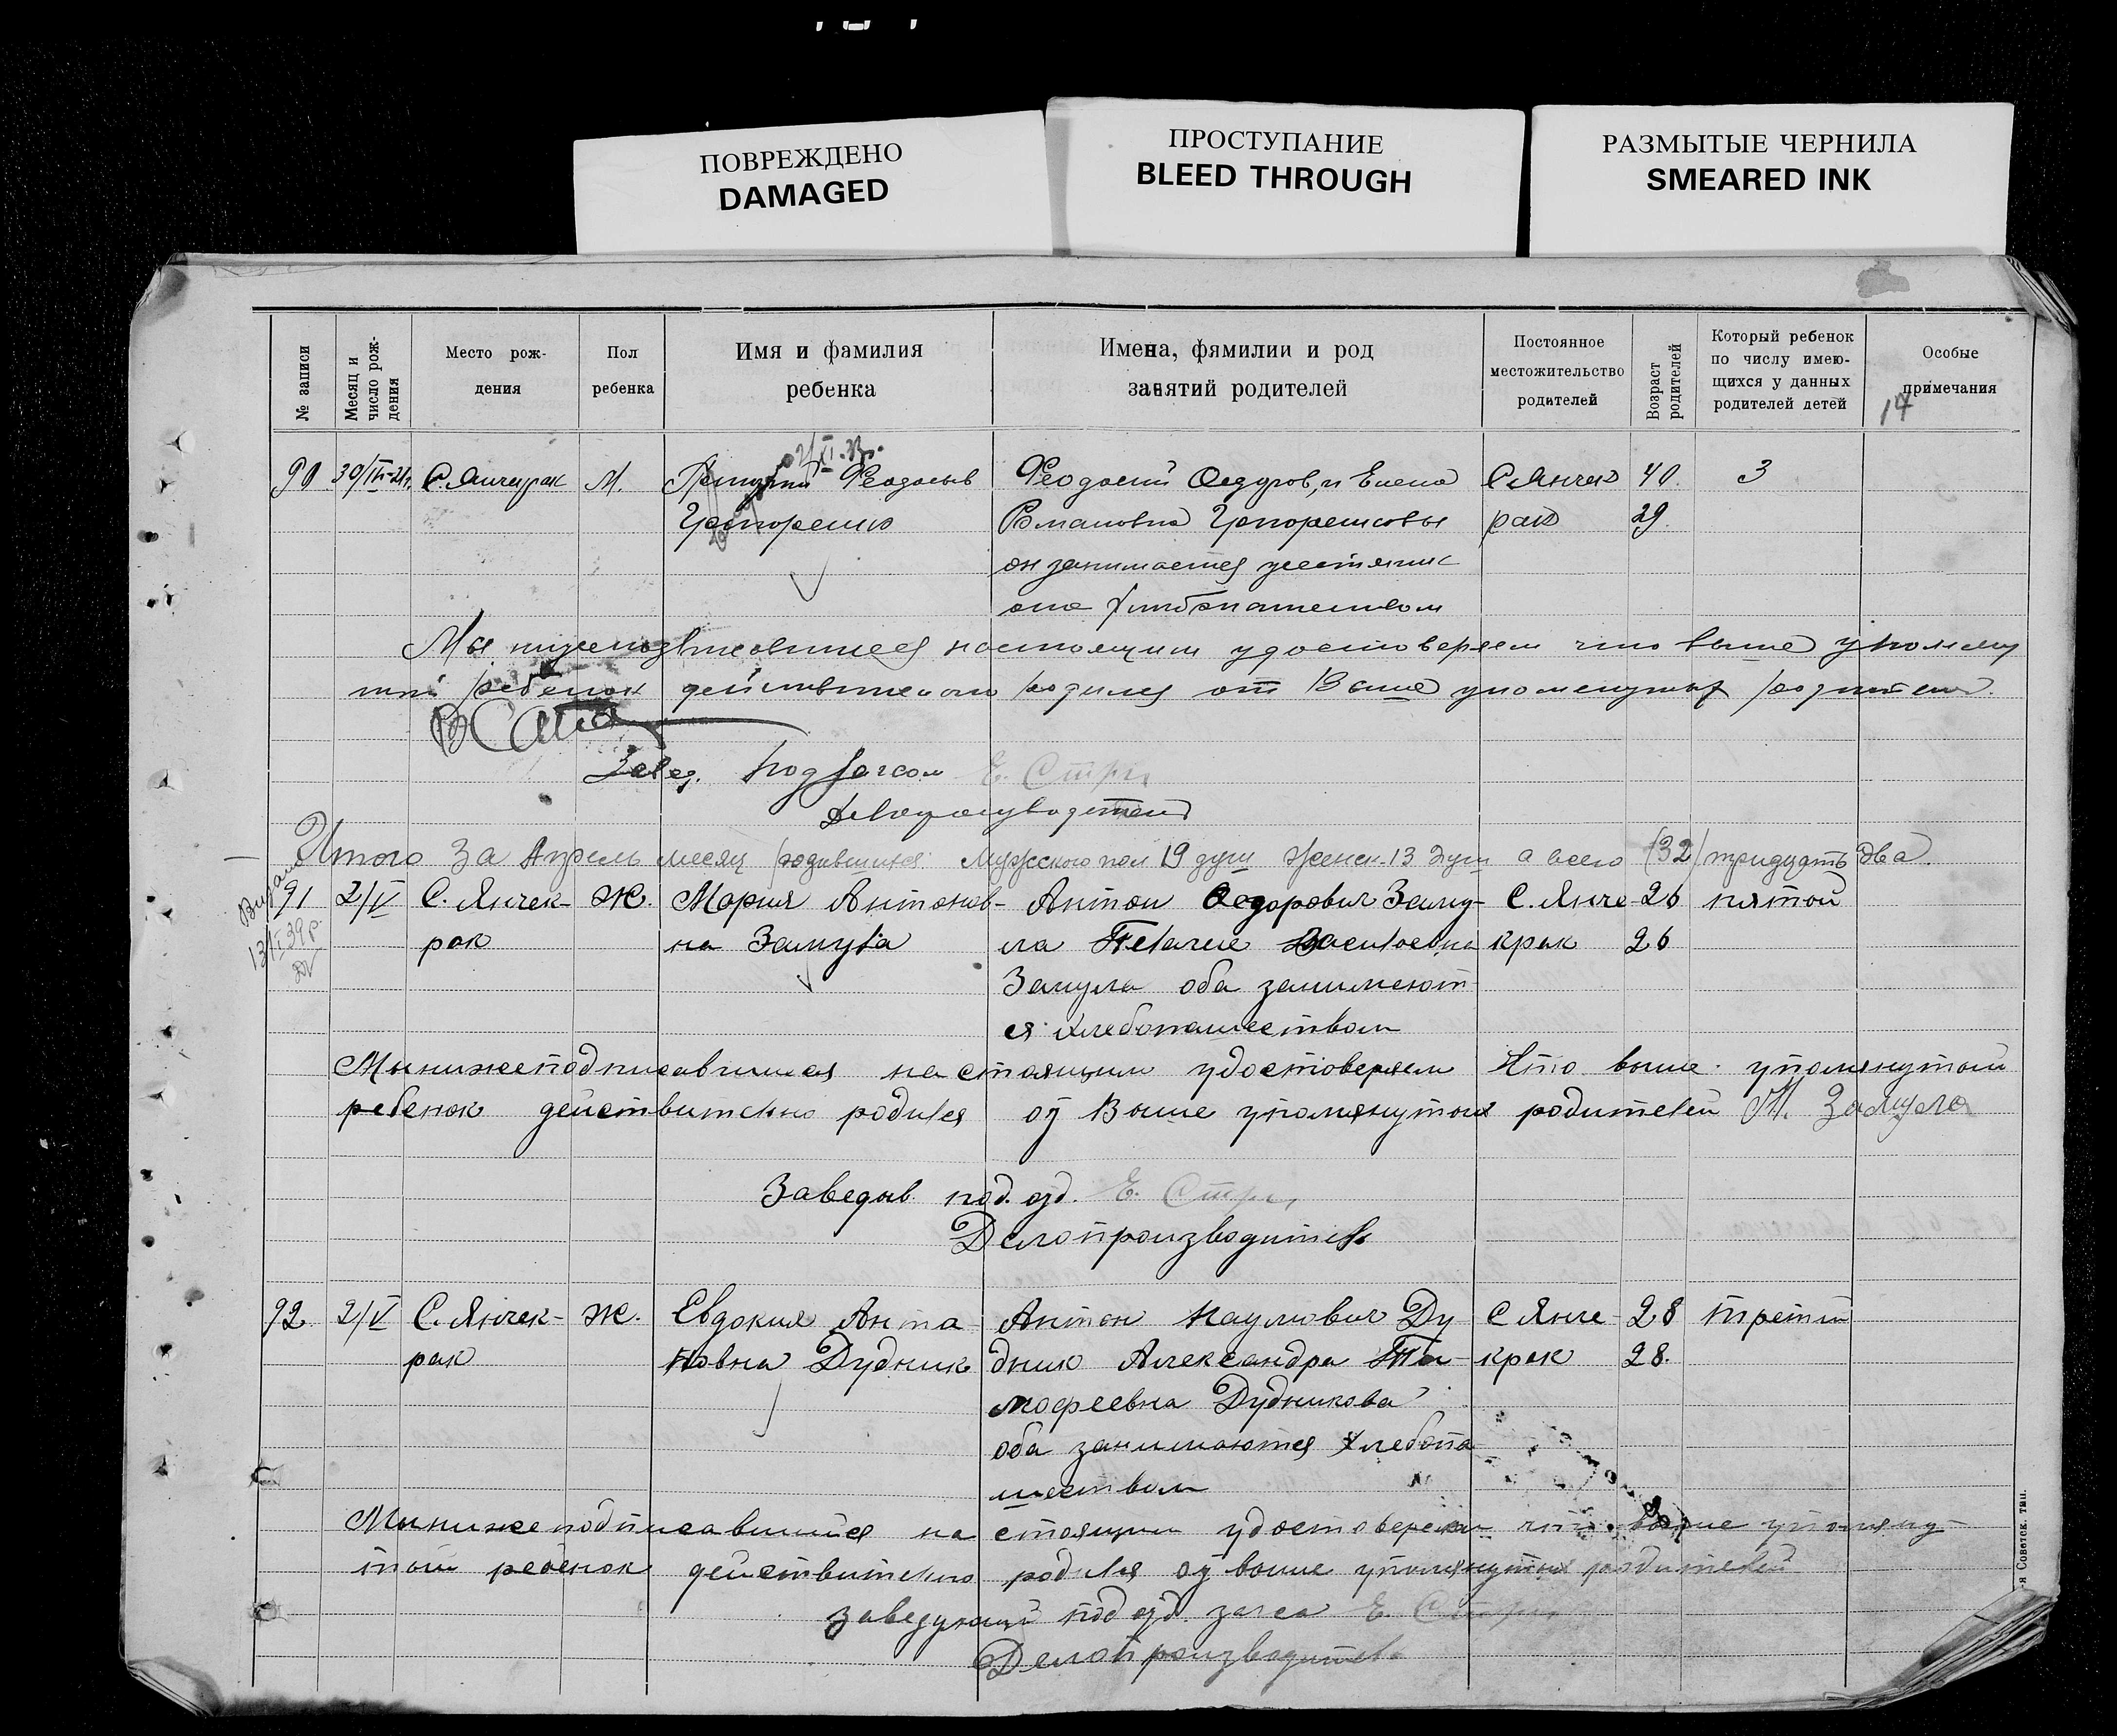 ПОВРЕЖДЕНО
DAMAGED
ПРОСТУПАНИЕ
BLEED THROUGH
РАЗМЫТЫЕ ЧЕРНИЛА
SMEARED INK
№ записи
Месяц и число рождения
Место рож-
дения
Пол
ребенка
Имя и фамилия
ребенка
Имена, фямилии и род
занятий родителей
Постоянное
местожительство
родителей
Возраст
родителей
Который ребенок
по числу имею-
щихся у данных
родителей детей
Особые
примечания
14
90 С. Янчекрак М. Феодосьев Феодосий и Елена С Янчек 40. 3
Романовна рак 29.
он занимается
она хлебопашеством
Мы нижеподписавшиеся настоящим удостоверяем что выше упомяну
тый ребенок действительно родился от Выше упомянутых родителей.
Завед. подзагсом Е.
Делопроизводитель
Итого За Апрель месяц родившихся Мужского пол 19 душ Женск. 13 Душ а всего (32) тридцать два.
91 2/V С. Янчек- Ж. Мария Антонов- Антон Федорович Заму- С. Янче- 26 пятой
рак на Замула ла Пелагие Васильевна крак 26
Замула оба занимают-
ся хлебопашеством
13/I 39р.
Мы нижеподписавшиеся настоящим удостоверяем Что выше упомянутый
ребенок действительно родился от Выше упомянутых родителей Замула
Заведыв. под. отд. Е.
Делопроизводитель
92. 2/V С. Янчек- Ж. Евдокия Анта- Антон Наумович Ду С Янче- 28 третий
рак новна Дудник дник Александра Ти- крак 28.
мофеевна Дудникова
оба занимаются хлебопа
шеством
Мы нижеподписавшиеся настоящим удостоверяем что выше упомяну-
тый ребенок действительно родился от выше упомянутых родителей
заведующий под отд. загса Е.
Делопроизводитель
я Советск. тип.